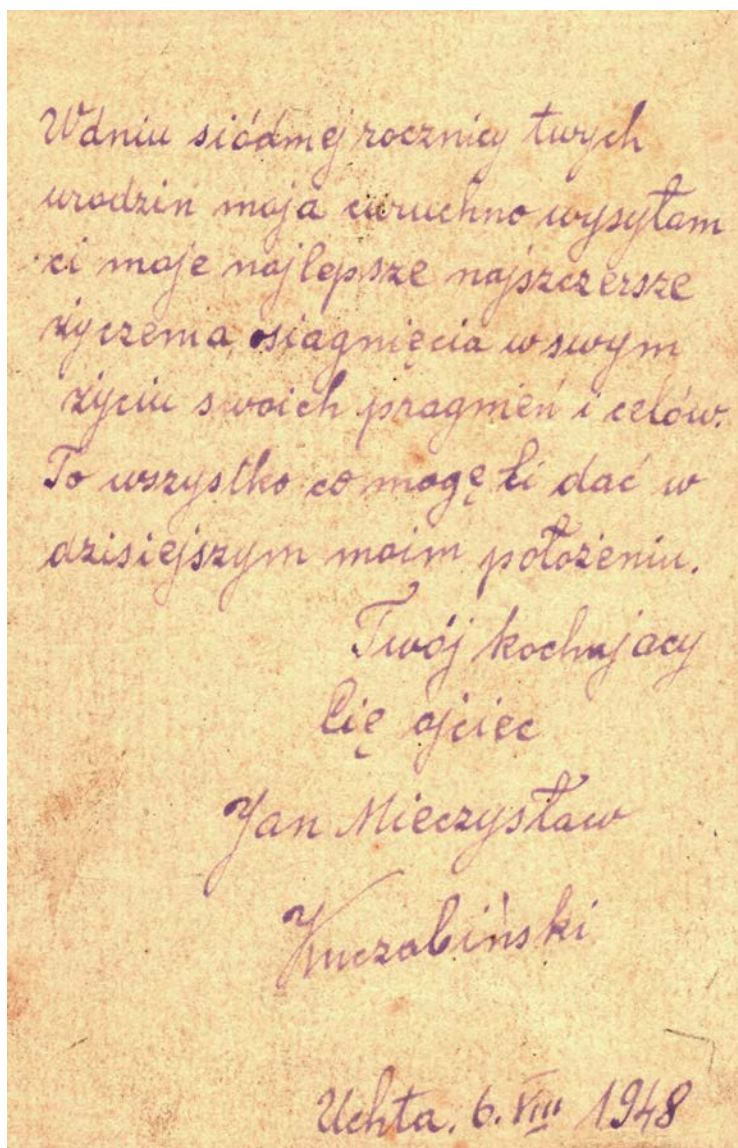 W dniu siódmej rocznicy twych
urodzin moja curuchno wysyłam
ci moje najlepsze najszczersze
życzenia osiagnięcia w swym
życiu swoich pragnień i celów.
To wszystko co mogę Ci dać w
dzisiejszym moim położeniu.
Twój kochający
Cię ojciec
Jan Mieczysław
Kuczabiński
Uchta. 6. VIII 1948